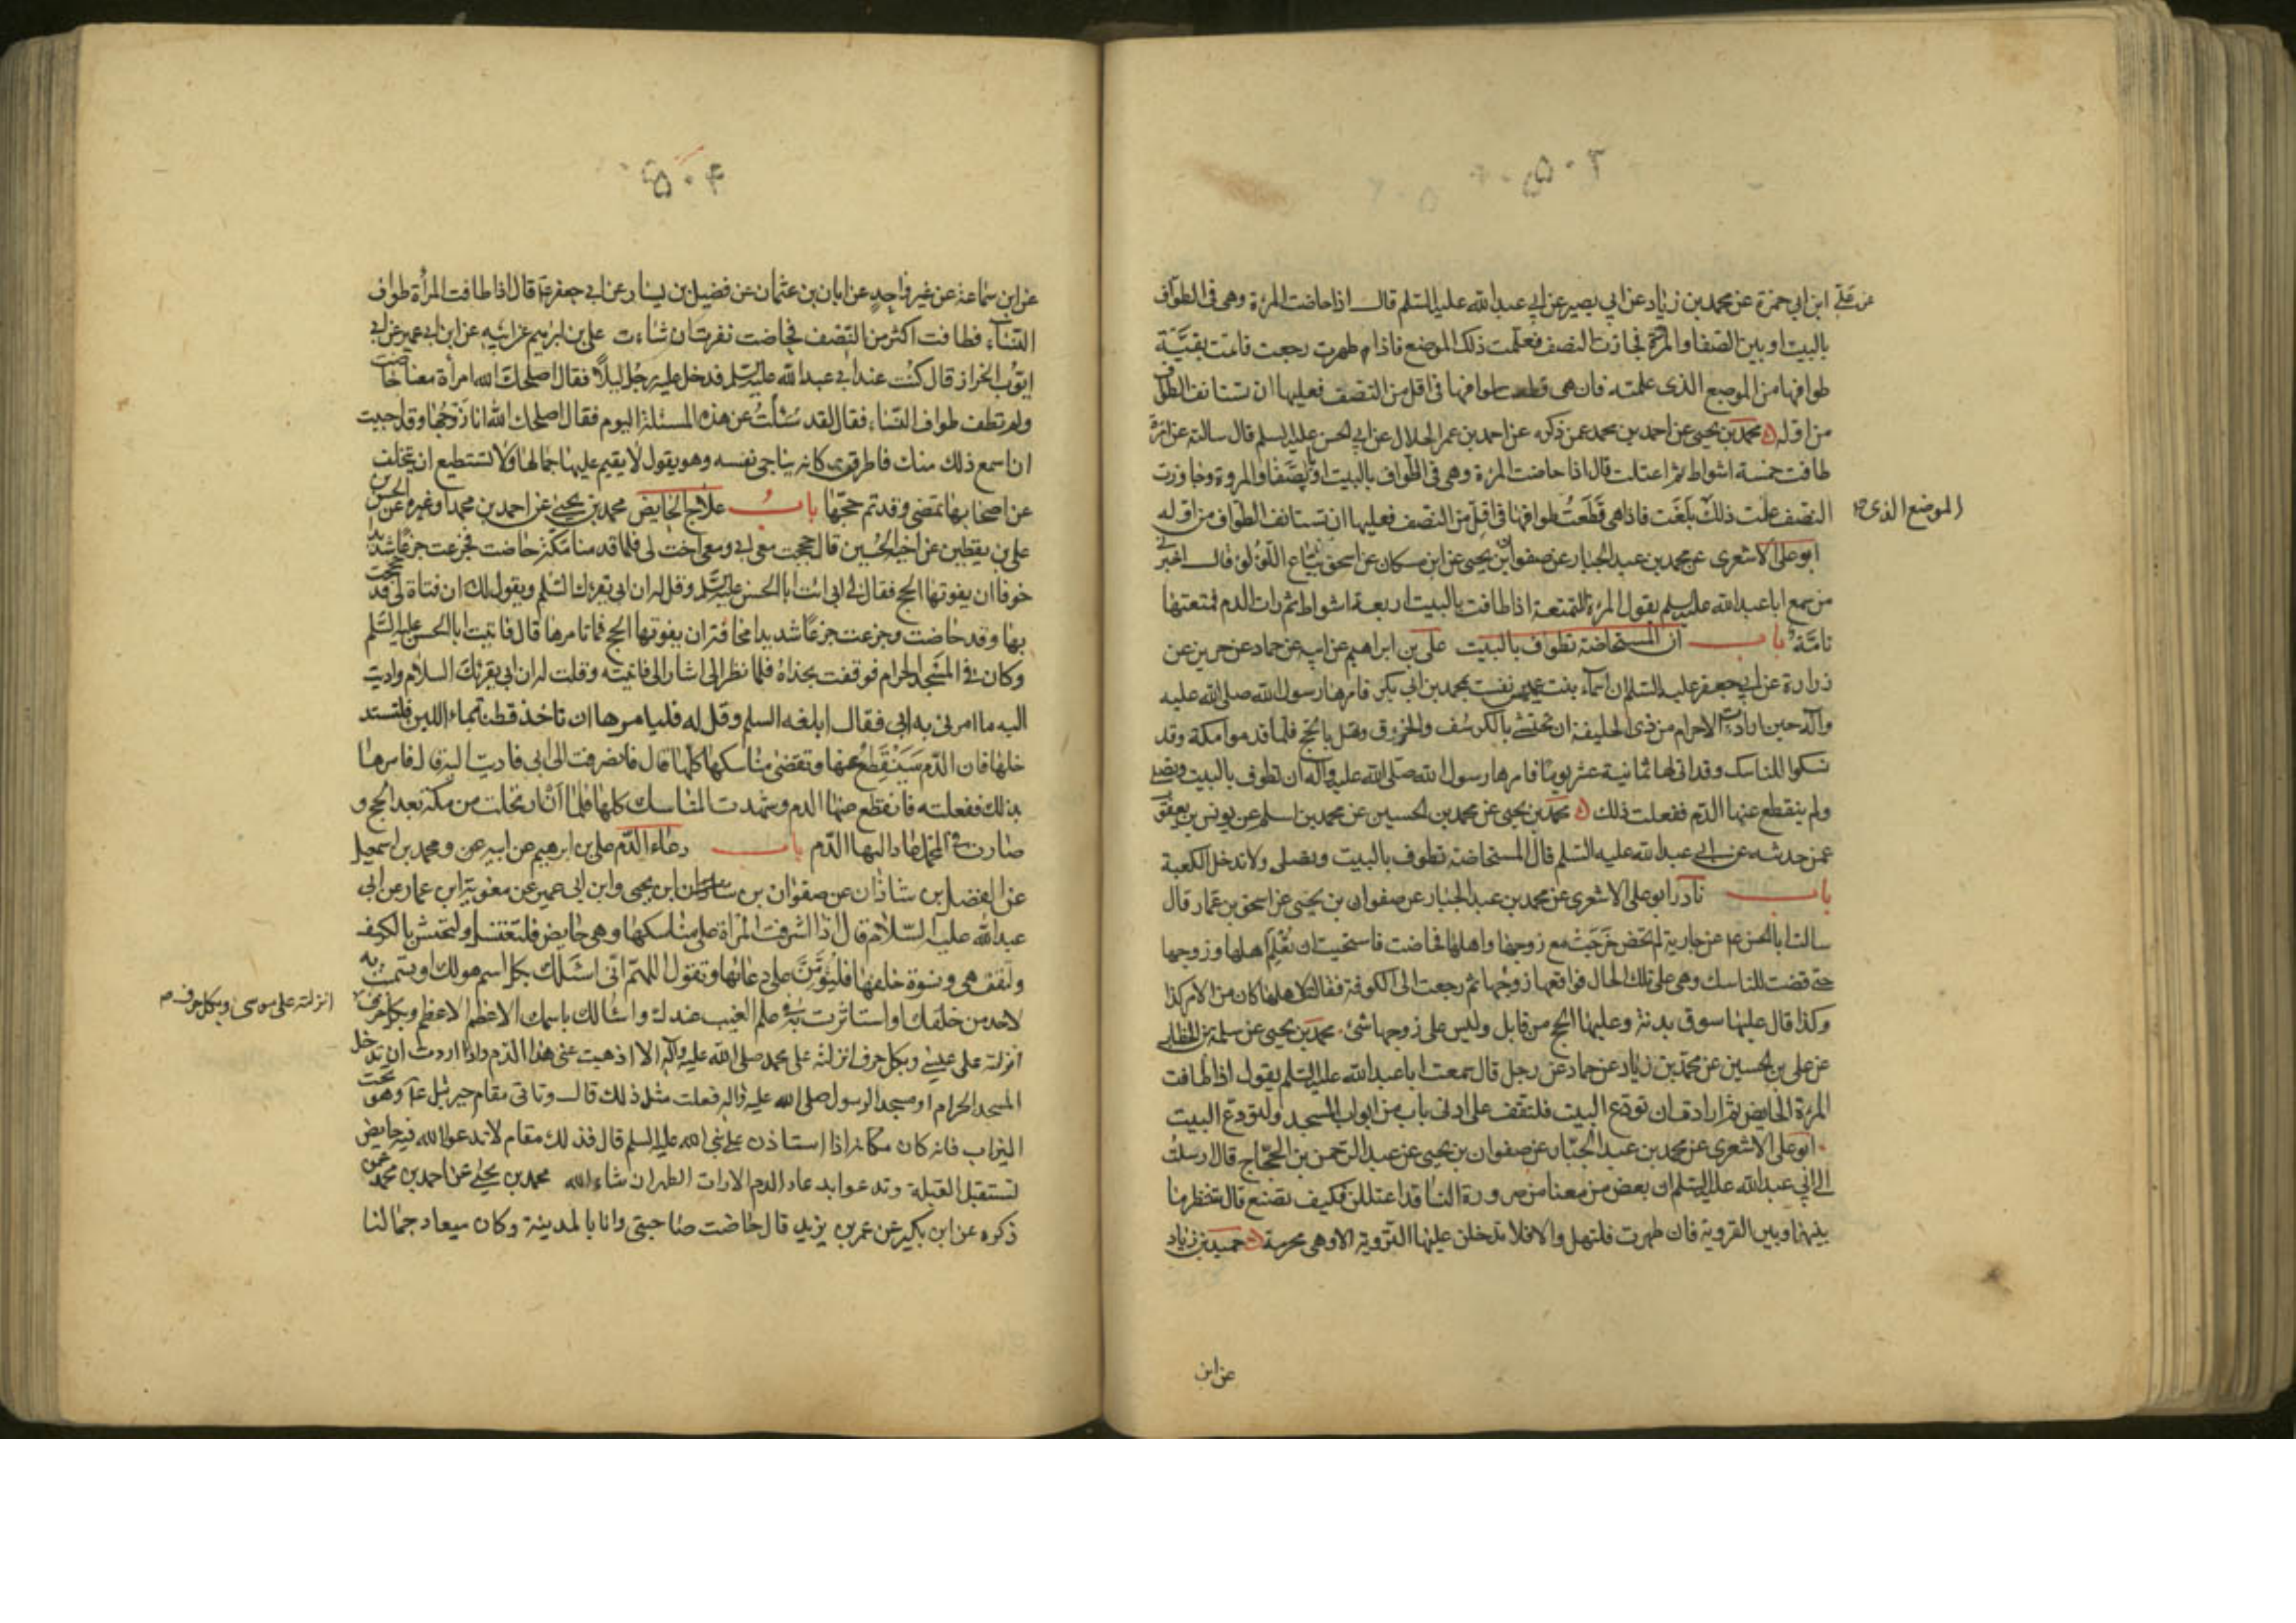 ٥٠٣
عن علي ابن ابي حمزة عن محمد بن زياد عن ابي بصير عن ابي عبد الله عليه السلم قال اذا حاضت المرءة وهي في الطواف
بالبيت او بين الصفا والمروة فجازت النصف فعلمت ذلك الموضع فاذا طهرت رجعت فاتمت بقية
طوافها من الموضع الذي علمته فان هي قطعت طوافها في اقل من النصف فعليها ان تستانف الطواف
من اوله محمد بن يحيى عن احمد بن محمد عمن ذكره عن احمد بن عمر الحلال عن ابي الحسن عليه السلم قال سالته عن امرءة
طافت خمسة اشواط ثم اعتلت قال اذا حاضت المرءة وهي في الطواف بالبيت او بالصفا والمروة وجاوزت
النصف علمت ذلك بلغت فاذا هي قطعت طوافها في اقل من النصف فعليها ان تستانف الطواف من اوله
الموضع الذي
ابو علي الاشعري عن محمد بن عبد الجبار عن صفوان بن يحيى عن ابن مسكان عن اسحق بياع اللؤلؤ قال اخبرني
من سمع ابا عبد الله عليه السلم يقول المرءة المتمتعة اذا طافت بالبيت اربعة اشواط ثم رات الدم فمتعتها
تامة باب ان المستحاضة تطوف بالبيت علي بن ابراهيم عن ابيه عن حماد عن حريز عن
زرارة عن ابي جعفر عليه السلم ان اسماء بنت عميس نفست بمحمد بن ابي بكر فامرها رسول الله صلى الله عليه
وآله حين ارادت الاحرام من ذي الحليفة ان تحتشي بالكرسف والخرق وتهل بالحج فلما قدموا مكة وقد
نسكوا المناسك وقد اتى لها ثمانية عشر يوما فامرها رسول الله صلى الله عليه وآله ان تطوف بالبيت وتصلي
ولم ينقطع عنها الدم ففعلت ذلك محمد بن يحيى عن محمد بن الحسين عن محمد بن اسلم عن يونس بن يعقوب
عمن حدثه عن ابي عبد الله عليه السلم قال المستحاضة تطوف بالبيت وتصلي ولا تدخل الكعبة
باب نادر ابو علي الاشعري عن محمد بن عبد الجبار عن صفوان بن يحيى عن اسحق بن عمار قال
سالت ابا الحسن ع عن جارية لم تحض خرجت مع زوجها واهلها فحاضت فاستحيت ان تعلم اهلها وزوجها
حتى قضت المناسك وهي على تلك الحال فواقعها زوجها ثم رجعت الى الكوفة فقالت لاهلها كان من الامر كذا
وكذا قال عليها سوق بدنة وعليها الحج من قابل وليس على زوجها شئ محمد بن يحيى عن سلمة بن الخطاب
عن علي بن الحسين عن محمد بن زياد عن حماد عن رجل قال سمعت ابا عبد الله عليه السلم يقول اذا طافت
المرءة الحايض ثم ارادت ان تودع البيت فلتقف على ادنى باب من ابواب المسجد ولتودع البيت
ابو علي الاشعري عن محمد بن عبد الجبار عن صفوان بن يحيى عن عبد الرحمن بن الحجاج قال ارسلت
الى ابي عبد الله عليه السلم ان بعض من معنا من صرورة النسا قد اعتللن فكيف تصنع قال تنتظر ما
بينها وبين التروية فان طهرت فلتهل والا فلا تدخلن عليها التروية الا وهي محرمة حميد بن زياد
عن ابن
٥٠٤
عن ابن سماعة عن غير واحد عن ابان بن عثمان عن فضيل بن يسار عن ابي جعفر ع قال اذا طافت المرأة طواف
النساء فطافت اكثر من النصف فحاضت نفرت ان شاءت علي بن ابرهيم عن ابيه عن ابن ابي عمير عن ابي
ايوب الخراز قال كنت عند ابي عبد الله عليه السلم فدخل عليه رجل ليلا فقال اصلحك الله امرأة معنا حاضت
ولم تطف طواف النساء فقال لقد سئلت عن هذه المسئلة اليوم فقال اصلحك الله انا زوجها وقد احببت
ان اسمع ذلك منك فاطرق كانه يناجي نفسه وهو يقول لا يقيم عليها جمالها ولا تستطيع ان تتخلف
عن اصحابها تمضي وقد تم حجها باب علاج الحايض محمد بن يحيى عن احمد بن محمد او غيره عن الحسن بن
علي بن يقطين عن اخيه الحسين قال حججت مع ابي ومعي اخت لي فلما قدمنا مكة حاضت فجزعت جزعا شديدا
خوفا ان يفوتها الحج فقال لي ابي ائت ابا الحسن عليه السلم وقل له ان ابي يقرئك السلم ويقول لك ان فتاة لي قد حججت
بها وقد حاضت وجزعت جزعا شديدا مخافة ان يفوتها الحج فما تامرها قال فاتيت ابا الحسن عليه السلم
وكان في المسجد الحرام فوقفت بحذاه فلما نظر الي اشار الي فاتيته وقلت له ان ابي يقرئك السلام واديت
اليه ما امرني به ابي فقال ابلغه السلم وقل له فليامرها ان تاخذ قطنة بماء اللبن فلتستد
خلها فان الدم سينقطع عنها وتقضي مناسكها كلها قال فانصرفت الى ابي فاديت اليه قال فامرها
بذلك ففعلته فانقطع عنها الدم وشهدت المناسك كلها فلما ان ارتحلت من مكة بعد الحج و
صارت في المحمل عاد اليها الدم باب دعاء الدم علي بن ابرهيم عن ابيه ومحمد بن اسمعيل
عن الفضل بن شاذان عن صفوان بن يحيى وابن ابي عمير عن معوية ابن عمار عن ابي
عبد الله عليه السلام قال اذا اشرفت المرأة على مناسكها وهي حايض فلتغتسل ولتحتش بالكرسف
ولتقف هي ونسوة خلفها فليؤمن على دعائها وتقول اللهم اني اسئلك بكل اسم هو لك او تسميت به
لاحد من خلقك او استاثرت به في علم الغيب عندك واسالك باسمك الاعظم الاعظم وبكل حرف
انزلته على موسى وبكل حرف
انزلته على عيسى وبكل حرف انزلته على محمد صلى الله عليه وآله الا اذهبت عني هذا الدم واذا اردت ان تدخل
المسجد الحرام او مسجد الرسول صلى الله عليه وآله فعلت مثل ذلك قال وتاتي مقام جبرئيل ع وهو تحت
الميزاب فانه كان مكانه اذا استاذن على نبي الله عليه السلم قال فذلك مقام لا تدعو الله فيه حايض
تستقبل القبلة وتدعو بدعاء الدم الا رات الطهر ان شاء الله محمد بن يحيى عن احمد بن محمد عمن
ذكره عن ابن بكير عن عمر بن يزيد قال حاضت صاحبتي وانا بالمدينة وكان ميعاد جمالنا